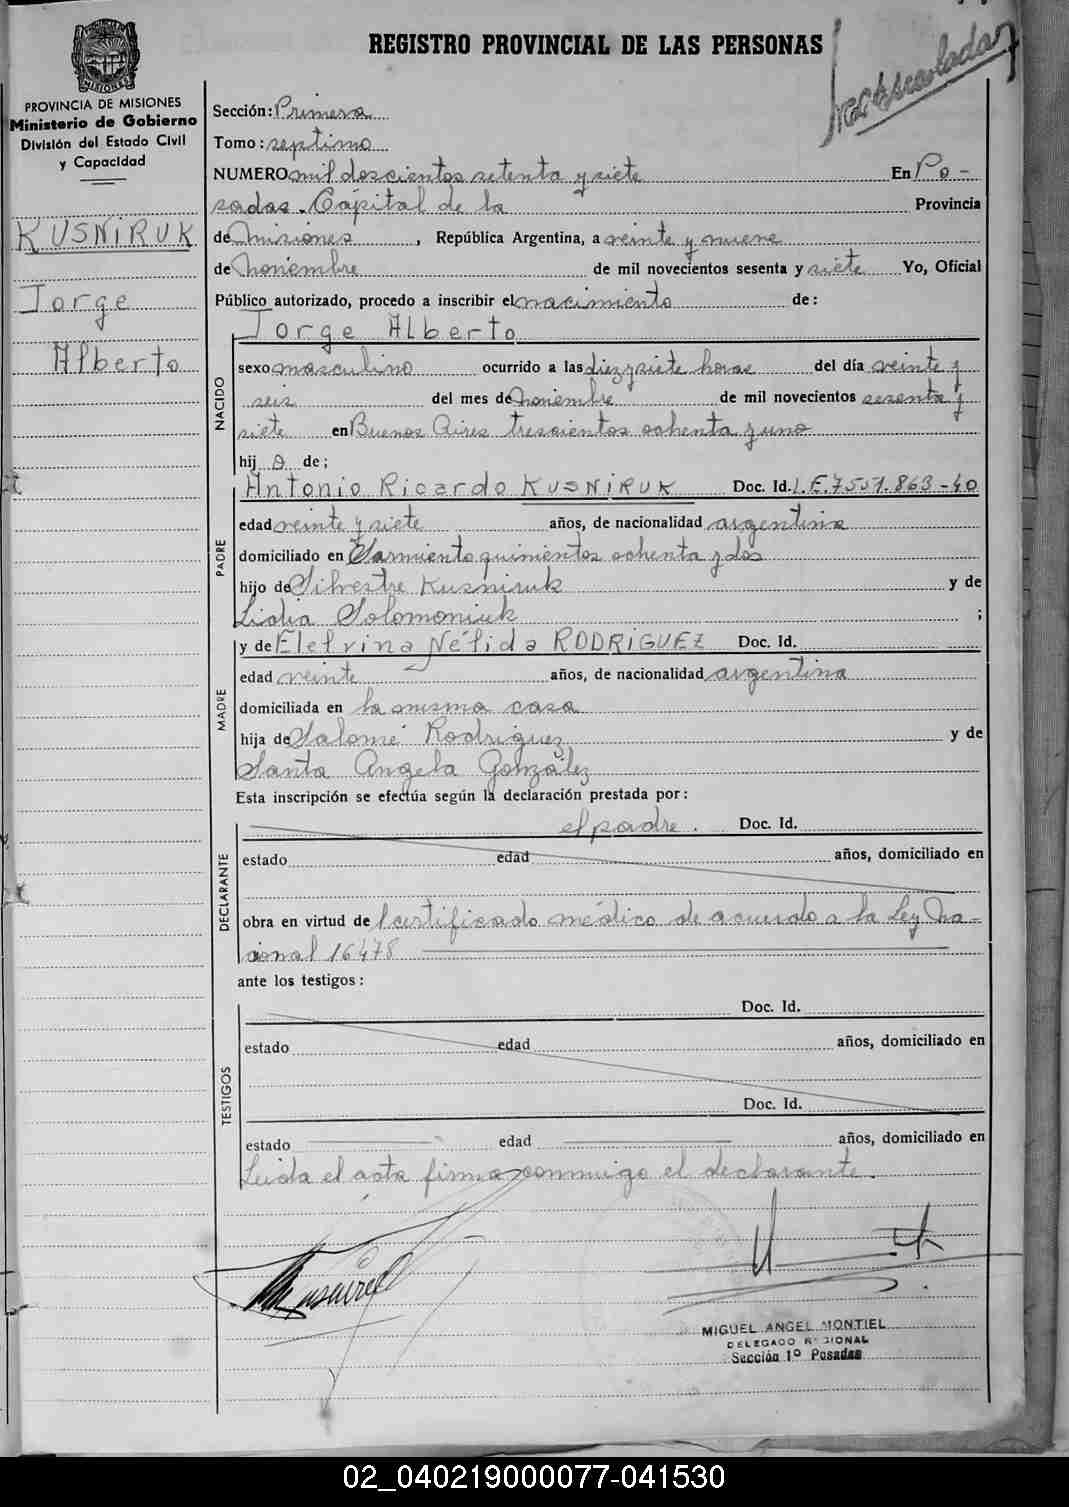 REGISTRO PROVINCIAL DE LAS PERSONAS
PROVINCIA DE MISIONES
Ministerio de Gobierno
División del Estado Civil
y Capacidad
KUSNIRUK
Jorge
Alberto
Sección: Primera
Tomo: septimo
NUMERO mil doscientos setenta y siete En Po-
sadas. Capital de la Provincia
de Misiones, República Argentina, a veinte y nueve
de noviembre de mil novecientos sesenta y siete Yo, Oficial
Público autorizado, procedo a inscribir el nacimiento de:
Jorge Alberto
NACIDO
sexo masculino ocurrido a las diez y siete horas del día veinte y
seis del mes de noviembre de mil novecientos sesenta y
siete en Buenos Aires trescientos ochenta y uno
hijo de;
PADRE
Antonio Ricardo KUSNIRUK Doc. Id. L.E. 7551.863-40
edad veinte y siete años, de nacionalidad argentina
domiciliado en Sarmiento quinientos ochenta y dos
hijo de Silvestre Kusniruk y de
Lidia Solomoniuk ;
y de Eletvina Nélida RODRIGUEZ Doc. Id.
MADRE
edad veinte años, de nacionalidad argentina
domiciliada en la misma casa
hija de Salomé Rodriguez y de
Santa Angela González
Esta inscripción se efectúa según la declaración prestada por:
DECLARANTE
el padre. Doc. Id.
estado edad años, domiciliado en
obra en virtud de 1 certificado médico de acuerdo a la Ley Na-
cional 16478
ante los testigos:
TESTIGOS
Doc. Id.
estado edad años, domiciliado en
Doc. Id.
estado edad años, domiciliado en
Leida el acta firma conmigo el declarante.
MIGUEL ANGEL MONTIEL
DELEGADO REGIONAL
Sección 1º Posadas
02_040219000077-041530